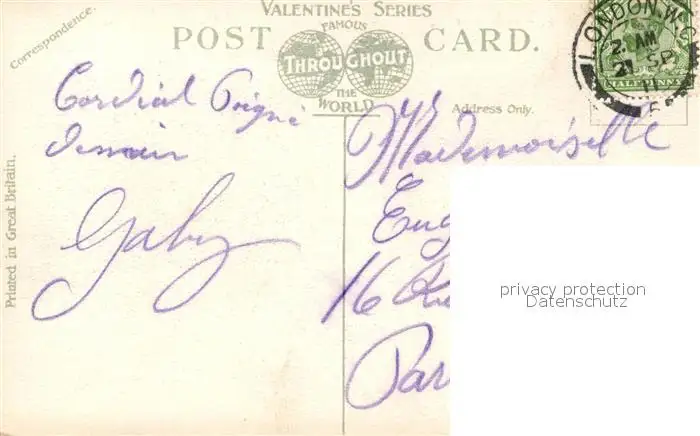 VALENTINE'S SERIES
FAMOUS
THROUGHOUT
THE
WORLD
POST CARD.
Correspondence.
Address Only.
Printed in Great Britain.
LONDON. W.
AM
SP
11
HALFPENNY
Cordial
Gaby
Mademoiselle
Eug
16
Par
privacy protection
Datenschutz